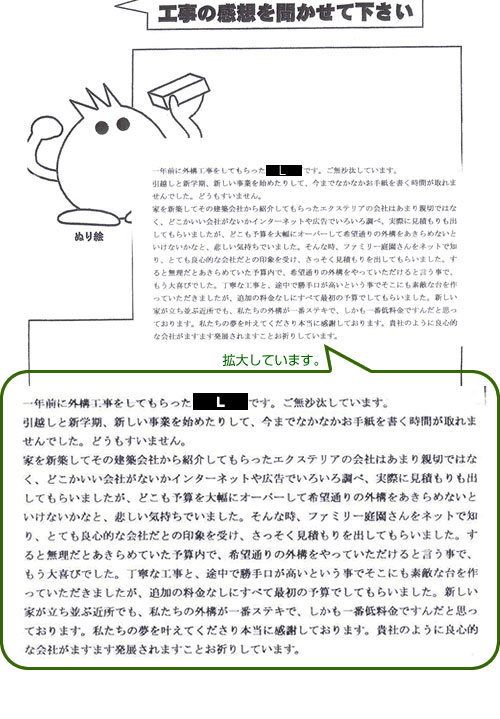 工事の感想を聞かせて下さい
ぬり絵
一年前に外構工事をしてもらった L です。ご無沙汰しています。
引越しと新学期、新しい事業を始めたりして、今までなかなかお手紙を書く時間が取れま
せんでした。どうもすいません。
家を新築してその建築会社から紹介してもらったエクステリアの会社はあまり親切ではな
く、どこかいい会社がないかインターネットや広告でいろいろ調べ、実際に見積もりも出
してもらいましたが、どこも予算を大幅にオーバーして希望通りの外構をあきらめないと
いけないかなと、悲しい気持ちでいました。そんな時、ファミリー庭園さんをネットで知
り、とても良心的な会社だとの印象を受け、さっそく見積もりを出してもらいました。す
ると無理だとあきらめていた予算内で、希望通りの外構をやっていただけると言う事で、
もう大喜びでした。丁寧な工事と、途中で勝手口が高いという事でそこにも素敵な台を作
っていただきましたが、追加の料金なしにすべて最初の予算でしてもらいました。新しい
家が立ち並ぶ近所でも、私たちの外構が一番ステキで、しかも一番低料金ですんだと思っ
ております。私たちの夢を叶えてくださり本当に感謝しております。貴社のように良心的
な会社がますます発展されますことお祈りしています。
拡大しています。
一年前に外構工事をしてもらった L です。ご無沙汰しています。
引越しと新学期、新しい事業を始めたりして、今までなかなかお手紙を書く時間が取れま
せんでした。どうもすいません。
家を新築してその建築会社から紹介してもらったエクステリアの会社はあまり親切ではな
く、どこかいい会社がないかインターネットや広告でいろいろ調べ、実際に見積もりも出
してもらいましたが、どこも予算を大幅にオーバーして希望通りの外構をあきらめないと
いけないかなと、悲しい気持ちでいました。そんな時、ファミリー庭園さんをネットで知
り、とても良心的な会社だとの印象を受け、さっそく見積もりを出してもらいました。す
ると無理だとあきらめていた予算内で、希望通りの外構をやっていただけると言う事で、
もう大喜びでした。丁寧な工事と、途中で勝手口が高いという事でそこにも素敵な台を作
っていただきましたが、追加の料金なしにすべて最初の予算でしてもらいました。新しい
家が立ち並ぶ近所でも、私たちの外構が一番ステキで、しかも一番低料金ですんだと思っ
ております。私たちの夢を叶えてくださり本当に感謝しております。貴社のように良心的
な会社がますます発展されますことお祈りしています。